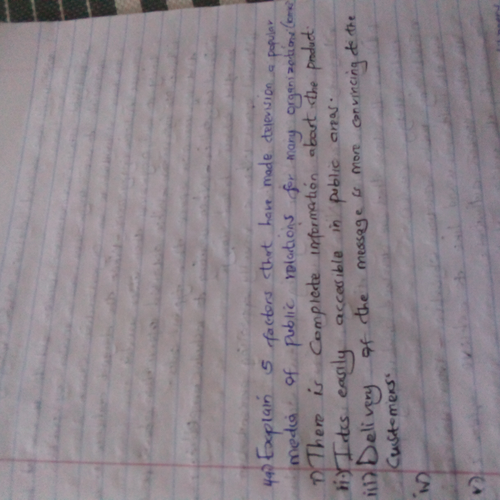 4a) Explain 5 factors that have made television a popular
media of public relations for many organizations
i) There is Complete information about the product.
ii) Its easily accessible in public areas.
iii) Delivery of the message is more convincing to the
Customers.
iv)
v)